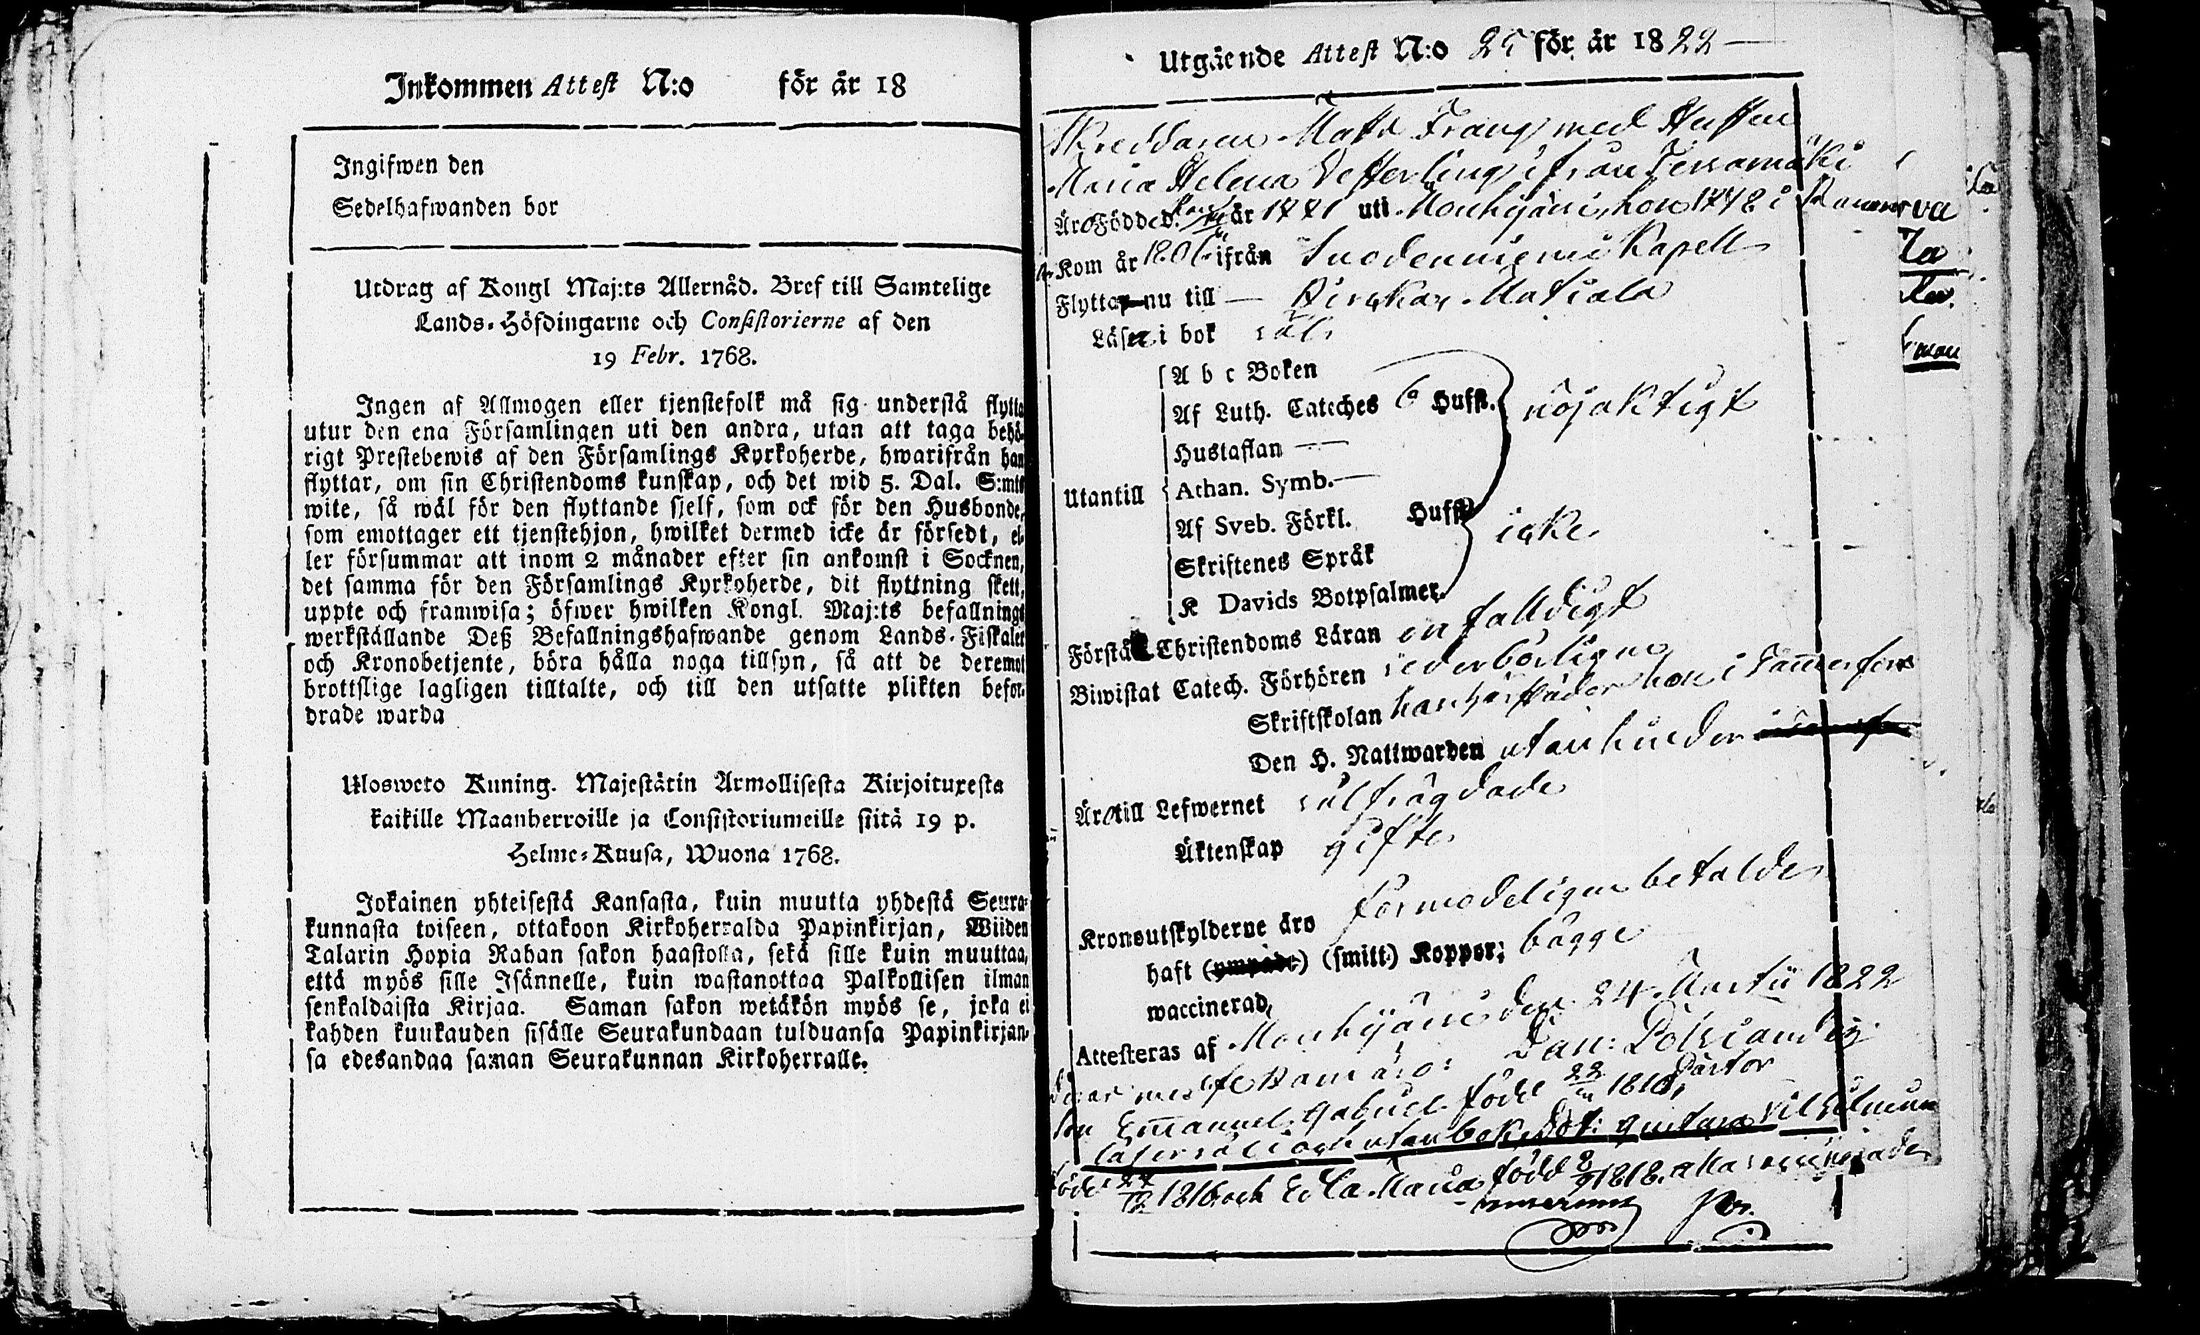 Inkommen Attest N:o för år 18
Ingifwen den
Sedelhafwanden bor
Utdrag af Kongl Maj:ts Allernåd. Bref till Samtelige
Lands-Höfdingarne och Consistorierne af den
19 Febr. 1768.
Ingen af Allmogen eller tjenstefolk må sig understå flytta
utur den ena Församlingen uti den andra, utan att taga behö-
rigt Prestebewis af den Församlings Kyrkoherde, hwarifrån han
flyttar, om sin Christendoms kunskap, och det wid 5. Dal. S:mts
wite, så wäl för den flyttande sjelf, som ock för den Husbonde,
som emottager ett tjenstehjon, hwilket dermed icke är försedt, el-
ler försummar att inom 2 månader efter sin ankomst i Socknen,
det samma för den Församlings Kyrkoherde, dit flyttning skett,
uppte och framwisa; öfwer hwilken Kongl. Maj:ts befallnings
werkställande Deß Befallningshafwande genom Lands-Fiskaler
och Kronobetjente, böra hålla noga tillsyn, så att de deremot
brottslige lagligen tilltalte, och till den utsatte plikten befor-
drade warda
Ulosweto Kuning. Majestätin Armollisesta Kirjoituxesta
kaikille Maanherroille ja Consistoriumeille siitä 19 p.
Helme-Kuusa, Wuona 1768.
Jokainen yhteisestä Kansasta, kuin muutta yhdestä Seura-
kunnasta toiseen, ottakoon Kirkoherralda Papinkirjan, Wiiden
Talarin Hopia Rahan sakon haastolla, sekä sille kuin muuttaa,
että myös sille Isännelle, kuin wastanottaa Palkollisen ilman
senkaldaista Kirjaa. Saman sakon wetäkön myös se, joka ei
kahden kuukauden sisälle Seurakundaan tulduansa Papinkirjan-
sa edesandaa saman Seurakunnan Kirkoherralle.
Utgående Attest N:o 25 för år 1822
Skreddaren Matts Frang med Hustru
Maria Helena Vesterling ifrån
Äro Födde år 1771 uti Mouhijärvi, hon 1778 i
Kom år 1806 ifrån Suodenniemi Kapell
Flytta nu till Birckar. Matiala
Läser i bok väl
A b c Boken
Af Luth. Cateches 6 Hufst. nöjaktigt
Hustaflan
Utantill Athan. Symb.
Af Sveb. Förkl. Hufst. icke
Skriftenes Språk
K Davids Botpsalmer.
Förstå Christendoms Läran enfalldigt
Biwistat Catech. Förhören vederbörligen
Skriftskolan han härstädes hon i Tammerfors
Den H. Nattwarden utan hinder
Äro till Lefwernet välfrägdade
Äktenskap gifte
Kronoutskylderne äro förmodeligen betalde
haft (ympade) (smitt.) Koppor; bägge
waccinerad,
Attesteras af Mouhijärvi den 24 Martii 1822
Dan:
Pastor
Son Emanuel Gabriel född 22 1810,
läser väl i och utan bok, Dot: Gustava Vilhelmina
född 27/12 1816 och Eva Maria född 8/9 1818. alla vaccinerade